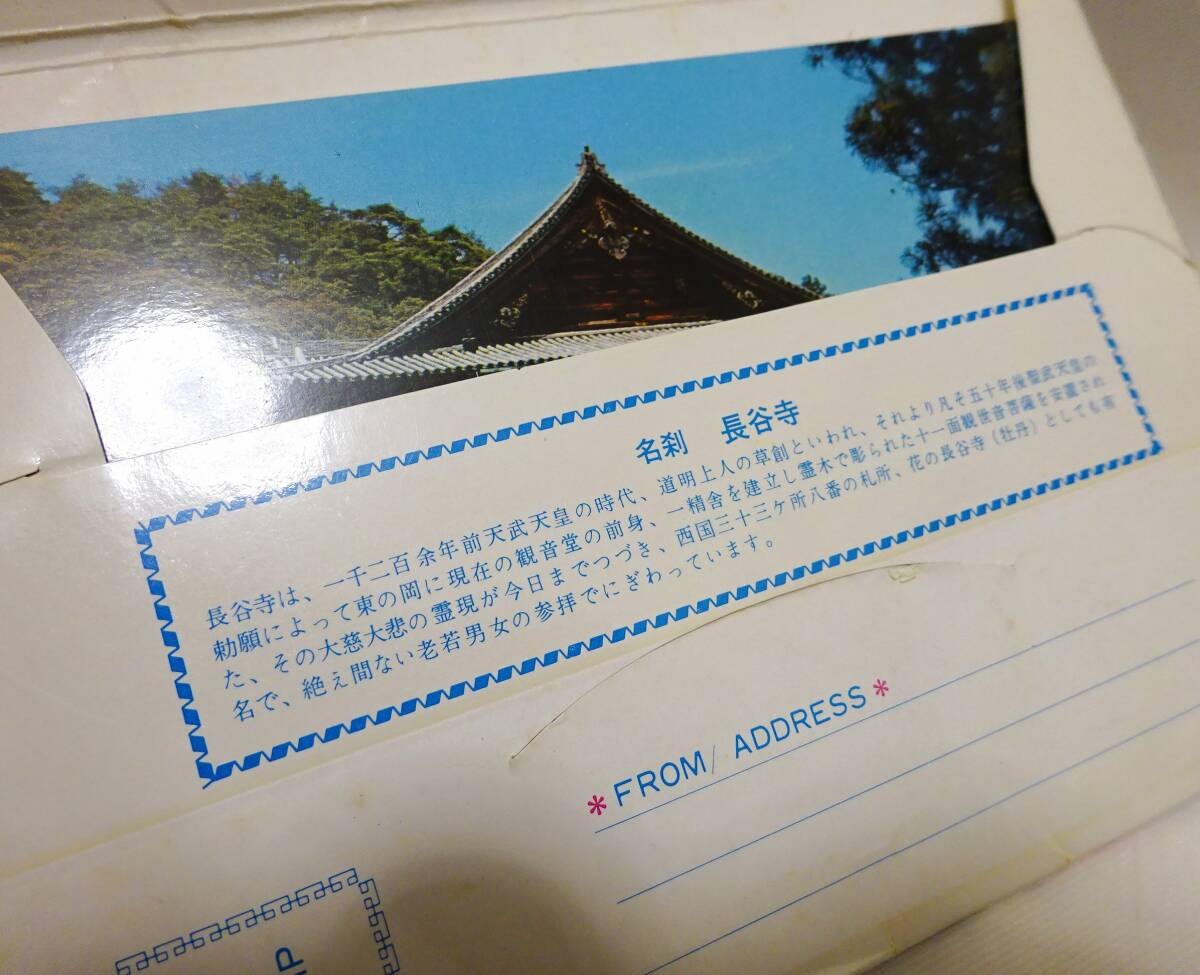 名刹　長谷寺
長谷寺は、一千二百余年前天武天皇の時代、道明上人の草創といわれ、それより凡そ五十年後聖武天皇の
勅願によって東の岡に現在の観音堂の前身、一精舎を建立し霊木で彫られた十一面観世音菩薩を安置され
た、その大慈大悲の霊現が今日までつづき、西国三十三ケ所八番の札所、花の長谷寺（牡丹）としても有
名で、絶え間ない老若男女の参拝でにぎわっています。
*FROM/ADDRESS*